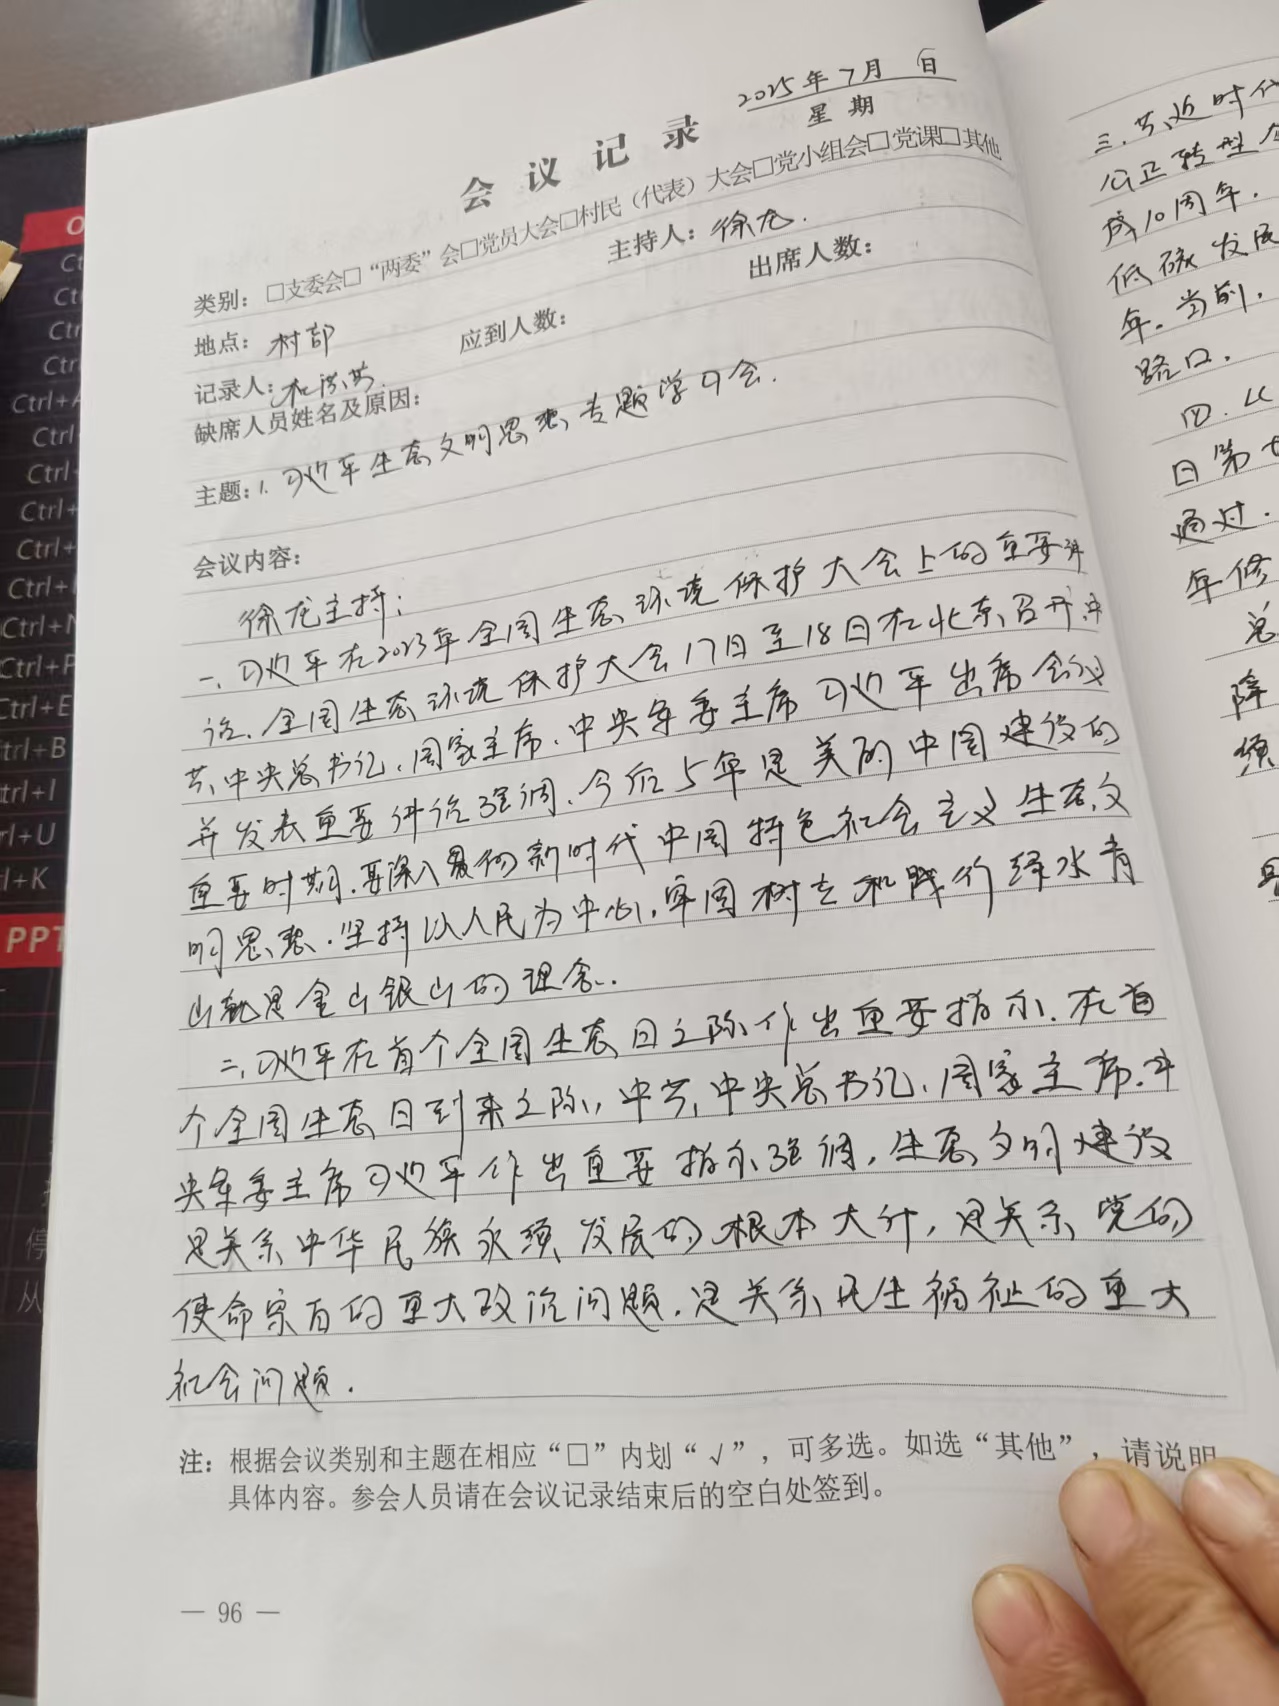 2025年7月 日
星期
会议记录
类别：□支委会□“两委”会□党员大会□村民（代表）大会□党小组会□党课□其他
地点：村部 主持人：徐龙.
应到人数： 出席人数：
记录人：
缺席人员姓名及原因：
主题：1.习近平生态文明思想专题学习会.
会议内容：
徐龙主持：
一、习近平在2023年全国生态环境保护大会上的重要讲
话、全国生态环境保护大会17日至18日在北京召开.中
共中央总书记、国家主席、中央军委主席习近平出席会议
并发表重要讲话强调、今后5年是美丽中国建设的
重要时期.要深入贯彻新时代中国特色社会主义生态文
明思想.坚持以人民为中心,牢固树立和践行绿水青
山就是金山银山的理念.
二、习近平在首个全国生态日之际作出重要指示.在首
个全国生态日到来之际,中共中央总书记、国家主席.中
央军委主席习近平作出重要指示强调,生态文明建设
是关系中华民族永续发展的根本大计,是关系党的
使命宗旨的重大政治问题.是关系民生福祉的重大
社会问题.
注：根据会议类别和主题在相应“□”内划“√”，可多选。如选“其他”，请说明
具体内容。参会人员请在会议记录结束后的空白处签到。
— 96 —
三、共近时代
公正转型
成10周年.
低碳发展
年。当前.
路口.
四、
日第七
通过.
年修
总
降
须
Ctrl+A
Ctrl+
Ctrl+
Ctrl+
Ctrl+
Ctrl+N
Ctrl+P
Ctrl+E
Ctrl+B
trl+I
rl+U
l+K
PPT
停
从